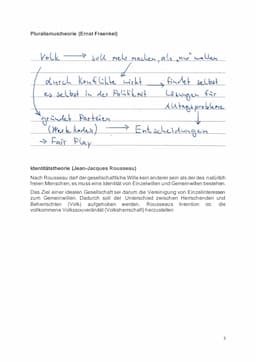 Pluralismustheorie (Ernst Fraenkel)
Volk → soll mehr machen, als „nur" wählen
durch Konflikte wirkt → findet selbst
es selbst in der Politik mit Lösungen für
Alltagsprobleme
gründet Parteien
(Merkmale) → Entscheidungen
→ Fair Play
Identitätstheorie (Jean-Jacques Rousseau)
Nach Rousseau darf der gesellschaftliche Wille kein anderer sein als der des natürlich
freien Menschen; es muss eine Identität von Einzelwillen und Gemeinwillen bestehen.
Das Ziel einer idealen Gesellschaft sei darum die Vereinigung von Einzelinteressen
zum Gemeinwillen. Dadurch soll der Unterschied zwischen Herrschenden und
Beherrschten (Volk) aufgehoben werden. Rousseaus Intention ist, die
vollkommene Volkssouveränität (Volksherrschaft) herzustellen